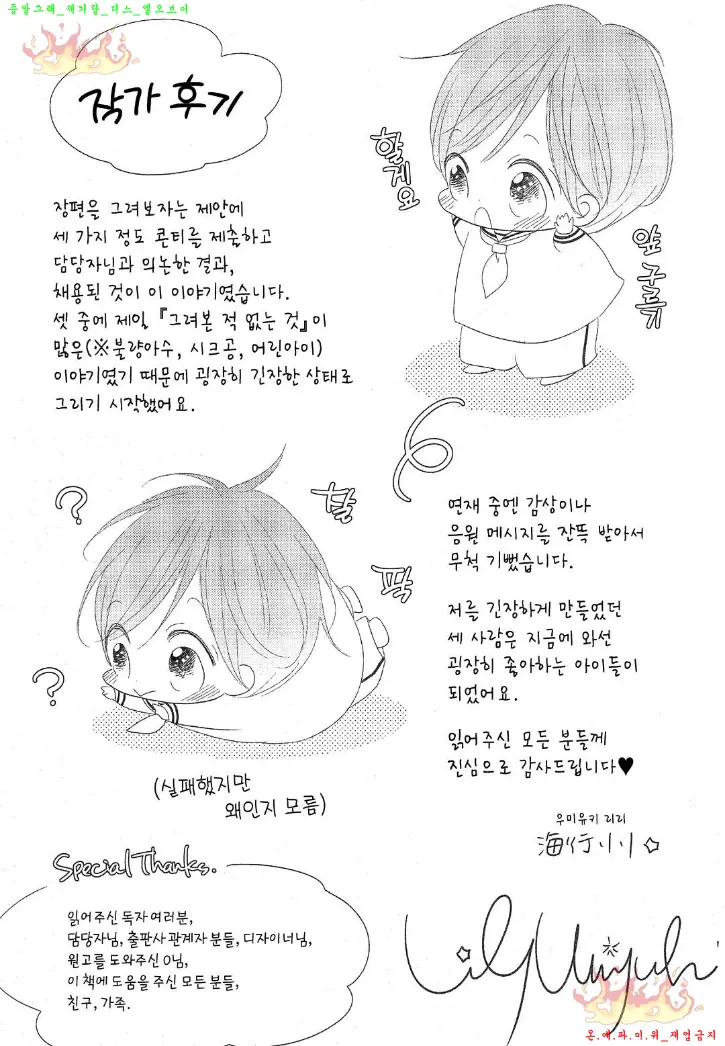 증말그래_제기랄_디스_엘오브이
작가 후기
할게요
앞 구르기
장편을 그려보자는 제안에
세 가지 정도 콘티를 제출하고
담당자님과 의논한 결과,
채용된 것이 이 이야기였습니다.
셋 중에 제일 『그려본 적 없는 것』이
많은(※불량아수, 시크공, 어린아이)
이야기였기 때문에 굉장히 긴장한 상태로
그리기 시작했어요.
?
?
팔
팍
(실패했지만
왜인지 모름)
연재 중엔 감상이나
응원 메시지를 잔뜩 받아서
무척 기뻤습니다.
저를 긴장하게 만들었던
세 사람은 지금에 와선
굉장히 좋아하는 아이들이
되었어요.
읽어주신 모든 분들께
진심으로 감사드립니다♥
우미유키 리리
海行リリ
Special Thanks.
읽어주신 독자 여러분,
담당자님, 출판사 관계자 분들, 디자이너님,
원고를 도와주신 O님,
이 책에 도움을 주신 모든 분들,
친구, 가족.
Lily Umiyuki
온.예.파.미.위_재업금지